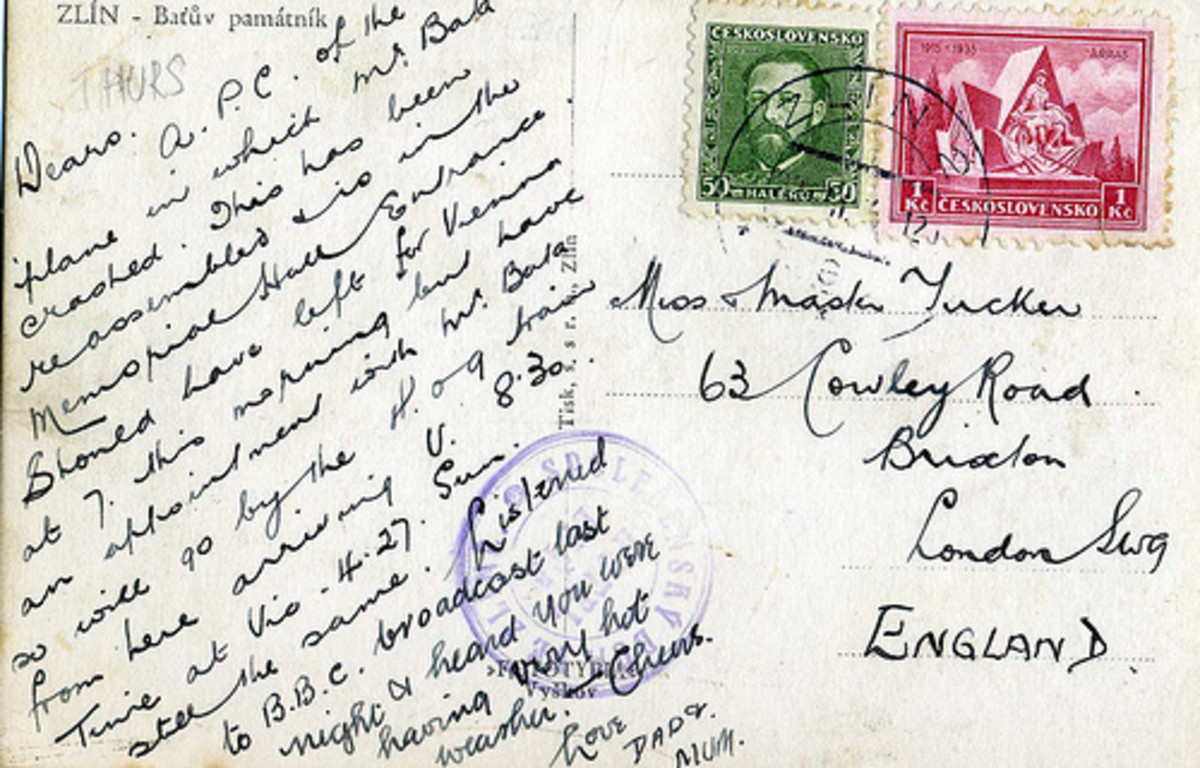 ZLÍN - Baťův památník
THURS
Dears. A. P. C. of the
'plane in which Mr Bata
crashed. This has been
reassembled & is in the
Memorial Hall Entrance.
Should have left for Vienna
at 7. this morning but have
an appointment with Mr. Bata
so will go by the H. o 9 train
from here arriving V. 8.30.
Time at Vic. 4.27. Sun.
still the same. Listened
to B.B.C. broadcast last
night & heard you were
having very hot
weather. Cheers.
Love
DAD &
MUM.
Tisk, s. s r. o., Zlín
Vyškov
ČESKOSLOVENSKO
50 HALÉŘŮ 50
1915-1935 ARRAS
1 Kč ČESKOSLOVENSKO 1 Kč
ZLIN
Miss & Master Tucker
63 Cowley Road
Brixton
London SW9
ENGLAND.